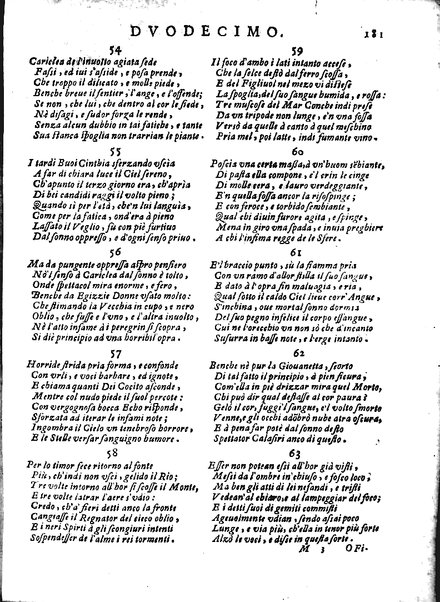 DVODECIMO. 181
54
Cariclea de l'inuolto agiata sede
Fassi, ed iui s'asside, e posa prende,
Che troppo il dilicato, e molle piede,
Benche breue il sentier, l'ange, e l'offende;
Se non, che lui, che dentro al cor le siede,
Nè disagi, e sudor forza le rende,
Senza alcun dubbio in tai fatiche, e tante
Sua stanca spoglia non trarrian le piante.
55
I tardi Buoi Cinthia sferzando vscia
A far di chiara luce il Ciel sereno,
Ch'apunto il terzo giorno era, ch'apria
Di bei candidi raggi il volto pieno;
Quando ò per l'età, che'n lui languia,
Come per la fatica, ond'era à pieno
Lassato il Veglio, fù con più furtiuo
Dal sonno oppresso, e d'ogni senso priuo.
56
Ma da pungente oppressa aspro pensiero
Nè 'l sensò à Cariclea dal sonno è tolto,
Onde spettacol mira enorme, e fero,
Benche da Egizzie Donne vsato molto:
Che stimando la Vecchia in cupo, e nero
Oblio, che fusse l'vno, e l'altra inuolto,
Nè l'atto infame à i peregrin si scopra,
Si diè principio ad vna horribil opra.
57
Horride strida pria forma, e confonde
Con vrli, e voci barbare, ed ignote,
E chiama quanti Dei Cocito asconde,
Mentre col nudo piede il suol percote:
Con vergognosa bocca Echo risponde,
Sforzata ad iterar le infami note;
Ingombra il Cielo vn tenebroso horrore,
E le Stelle versar sanguigno humore.
58
Per lo timor fece ritorno al fonte
Più, ch'indi non vscì, gelido il Rio;
Tre volte intorno all'hor si scosse il Monte,
E tre volte latrar l'aere s'vdio:
Credo, ch'a' fieri detti anco la fronte
Cangiasse il Regnator del cieco oblio,
E i neri Spirti à gli scongiuri intenti
Sospendesser de l'alme i rei tormenti.
59
Il foco d'ambo i lati intanto accese,
Che la selce destò dal ferro scossa,
E del Figliuol nel mezo vi distese
La spoglia, del suo sangue humida, e rossa:
Tre muscose del Mar Conche indi prese
Da vn tripode non lunge, e'n vna fossa
Versò da quelle à canto à quel meschino
Pria mel, poi latte, indi fumante vino.
60
Poscia vna certa massa, à vn'huom sēbiante,
Di pasta ella compone, e'l crin le cinge
Di molle cera, e lauro verdeggiante,
E'n quella fossa ancor la risospinge;
E con feroce, e torbido sembiante,
Qual chi diuin furore agita, e spinge,
Mena in giro vna spada, e inuia preghiere
A chi l'infima regge de le Sfere.
61
E'l braccio punto, iù la fiamma pria
Con un ramo d'allor stilla il suo sangue,
E dato à l'opra fin maluagia, e ria,
Qual sotto il caldo Ciel lieue corr'Angue,
S'inchina, oue mortal sonno dormia
Del suo pegno infelice il corpo essangue,
Cui ne l'orecchio vn non sò che d'incanto
Susurra in basse note, e l'erge intanto.
62
Benche nè pur la Giouanetta, scorto
Di tal fatto il principio, à pien sicura;
Com'ella in piè drizzar mira quel Morto,
Chi può dir qual destasse al cor paura?
Gelò il cor, fuggì 'l sangue, e'l volto smorto
Venne, e gli occhi addòbrò nube atra oscura,
E à pena far potè dal sonno desto
Spettator Calasiri anco di questo.
63
Esser non potean essi all'hor già visti,
Messi da l'ombra in chiuso, e fosco loco;
Ma ben gli atti di lei nefandi, e tristi
Vedean'al chiaro, e al lampeggiar del foco;
I detti suoi di gemiti commisti
Ageuolmente vdian, sendo assai poco
Lunge, e via più, ch'ella in tenor più forte
Alzò le voci, e disse in questa sorte.
M 3 OSi-